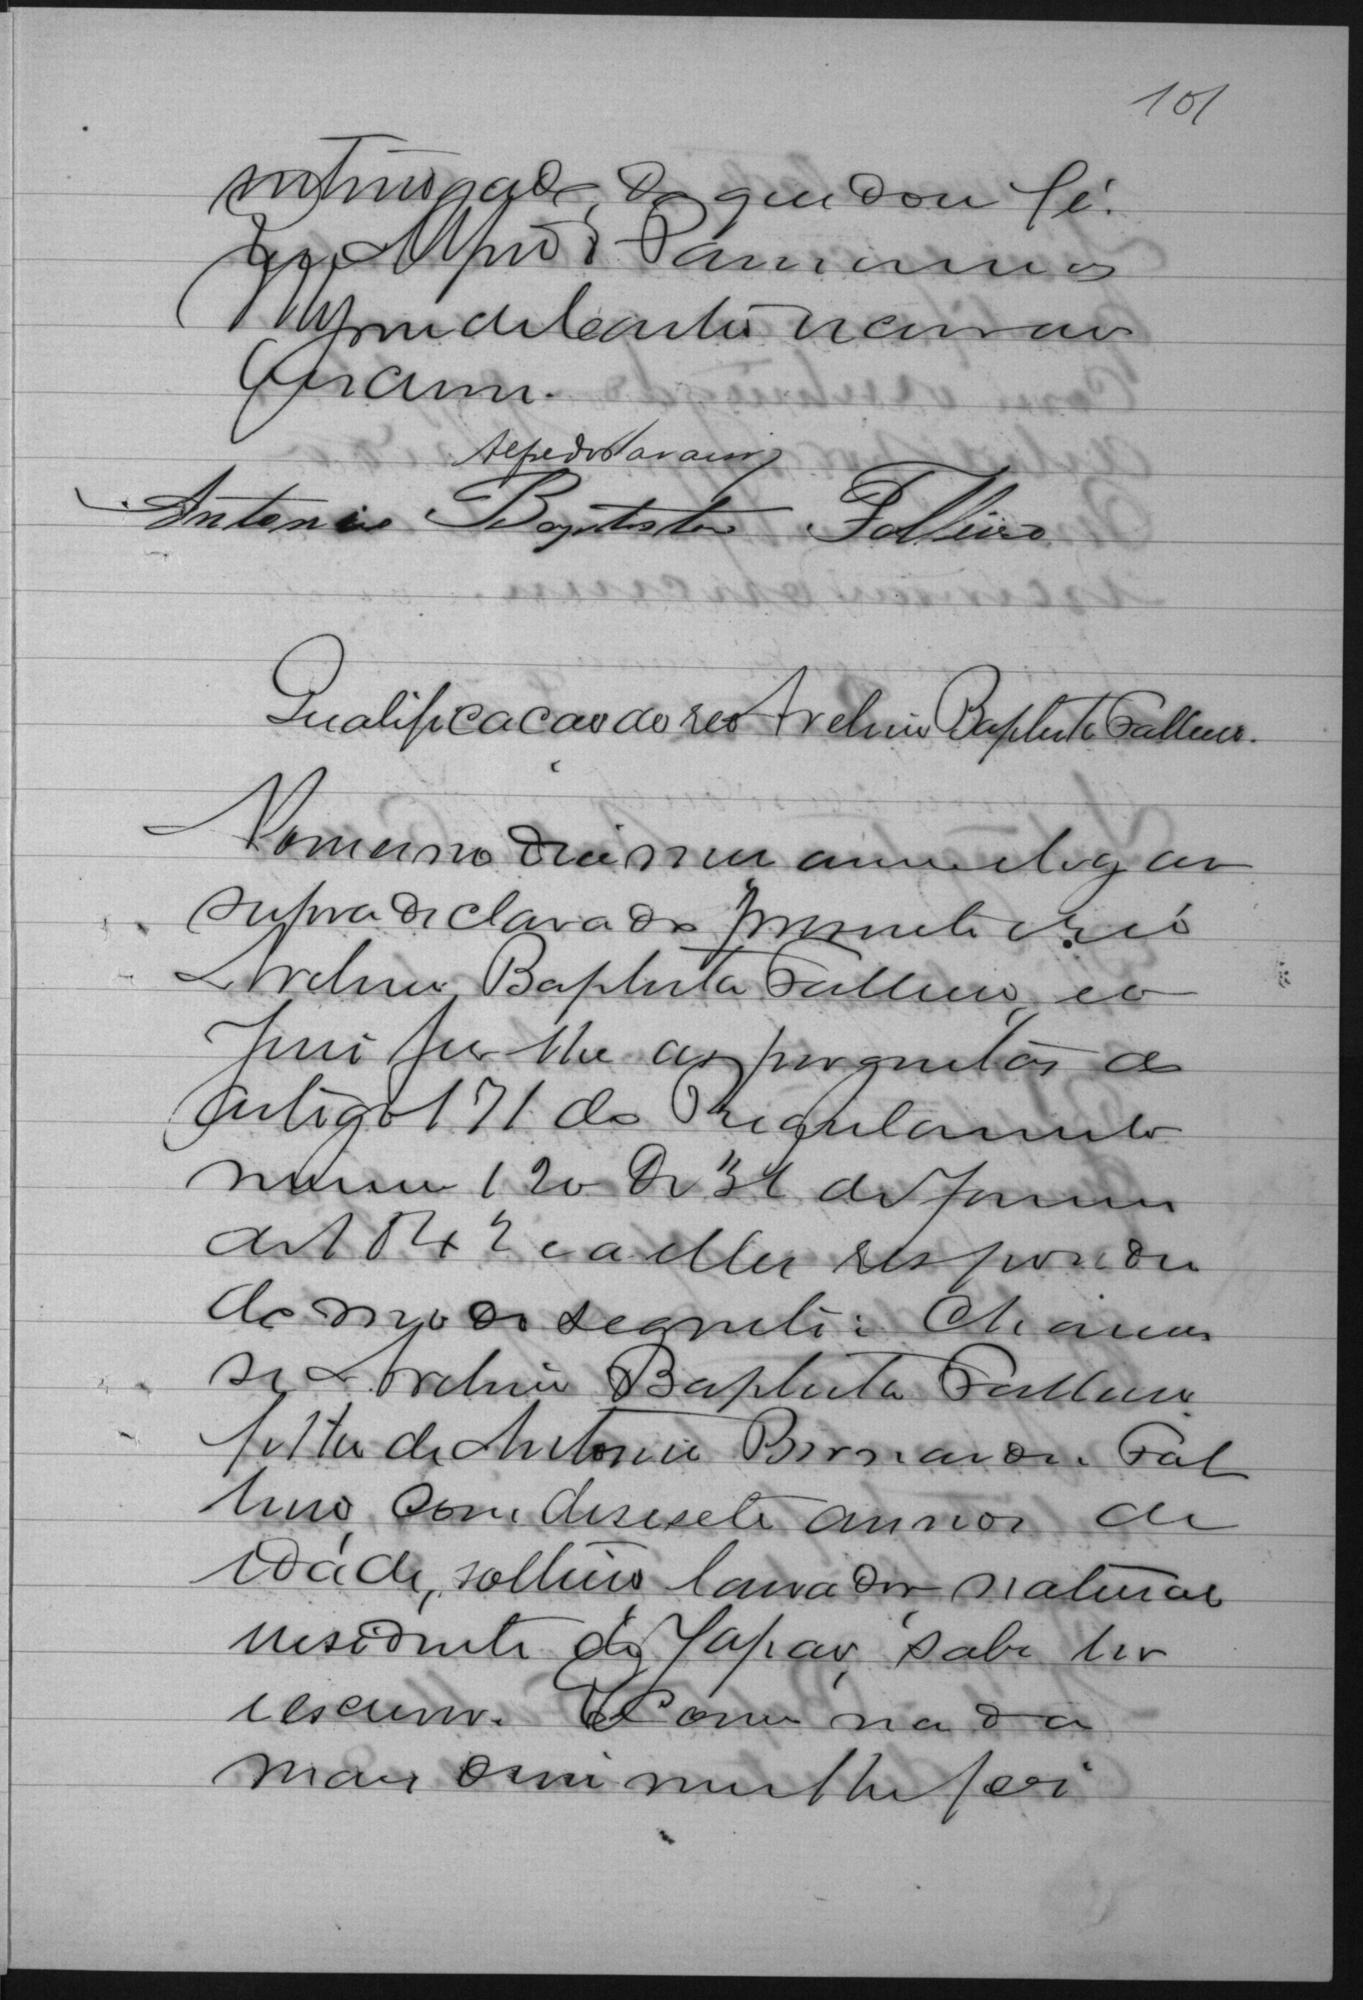 101
interrogado, do que dou fé.
Eu, Alfredo
escrivão
Antonio Baptista Falleiro
Qualificacao do reo Avelino Baptista Falleiro.
No mesmo dia mez anno e logar
supra declarado presente o reo
Avelino Baptista Falleiro, eo
Juiz fez lhe as perguntas do
artigo 171 do Regulamento
numero 120 de 31 de Janeiro
de 1842 e a ellas respondeu
do modo seguinte: Chamar
se Avelino Baptista Falleiro
filho de Antonio Bernardo Fal
leiro, com desesete annos de
idade, solteiro, lavrador, natural
residente do Japão, sabe ler
e escrever. E como nada
mais disse nem lhe foi